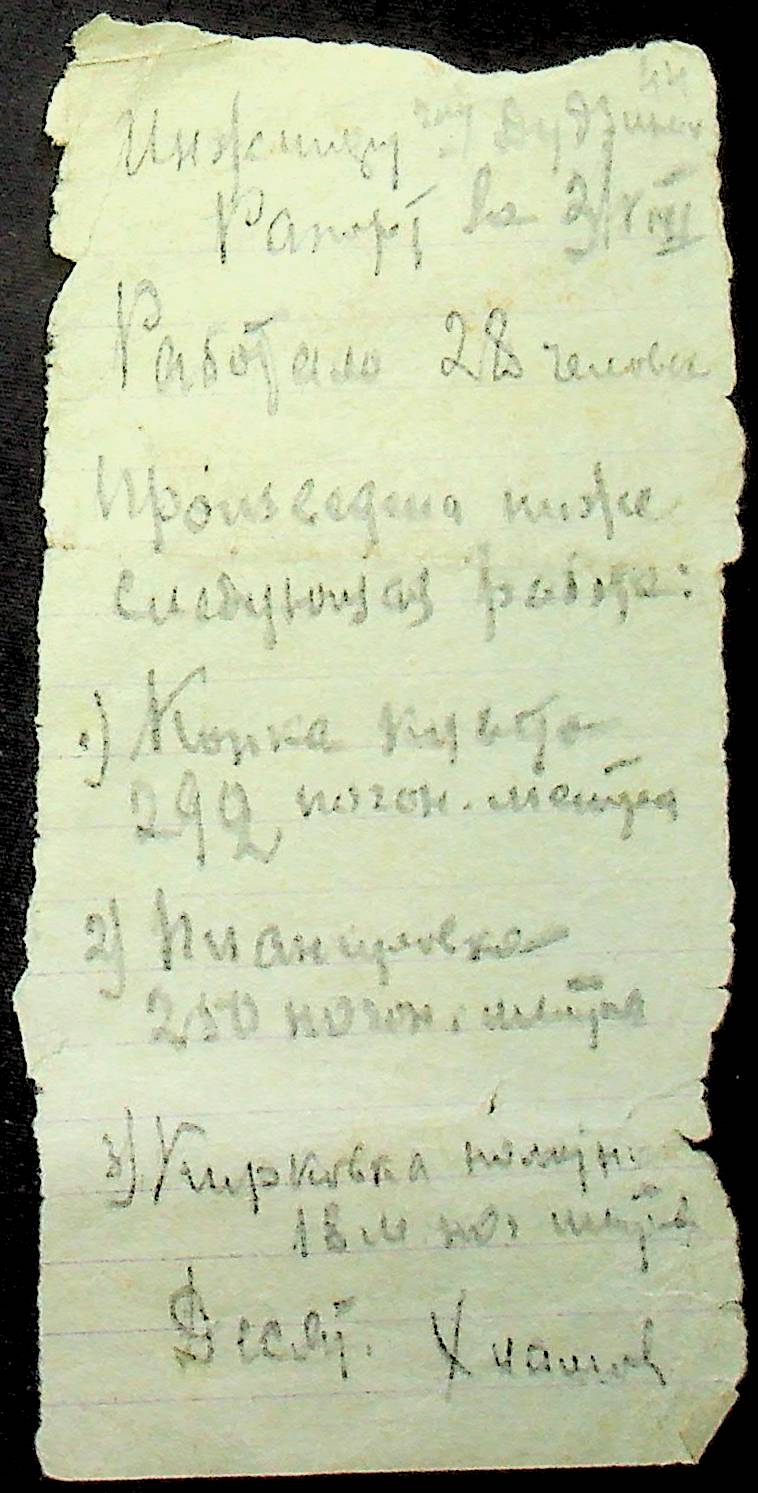 44
Инженеру тов Дудзин
Рапорт за 3/VIII
Работало 28 человек
Произведена ниже
следующая работа:
1) Копка кюветов
292 погон. метра
2) Планировка
250 погон. метра
3) Кирковка полотн
18 м пог метра
Десят.